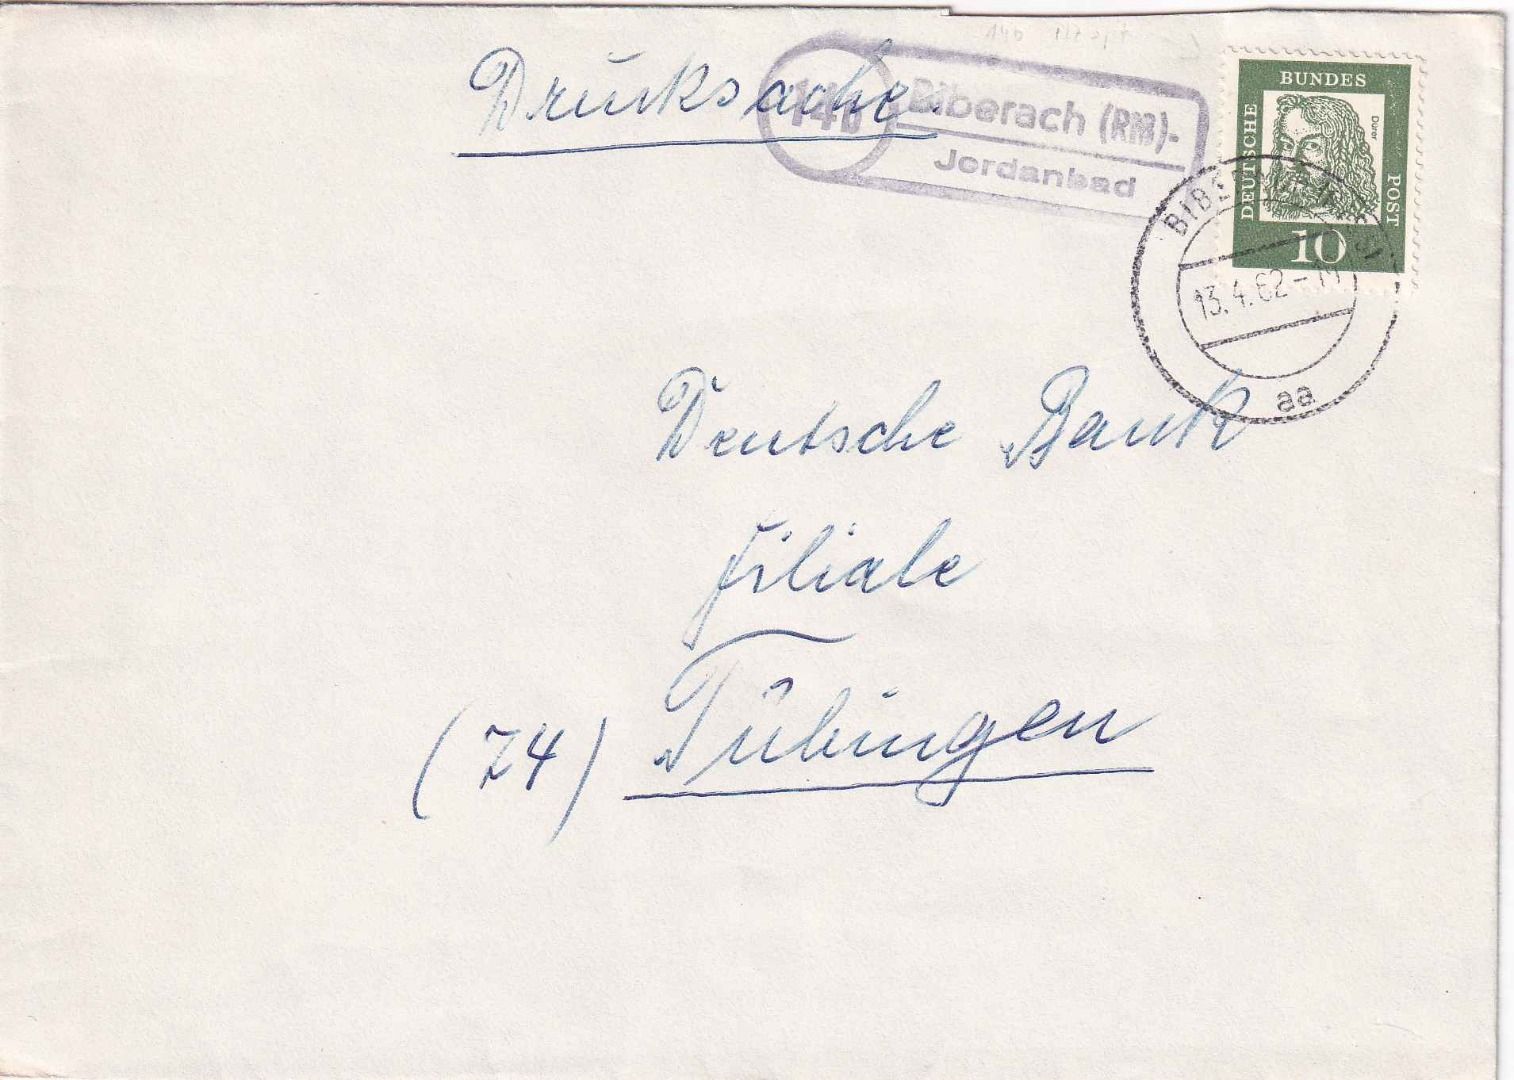 Drucksache.
14b Biberach (RM)-
Jordanbad
DEUTSCHE
BUNDES
POST
Dürer
10
13.4.62-
aa
Deutsche Bank
Filiale
(74) Tübingen